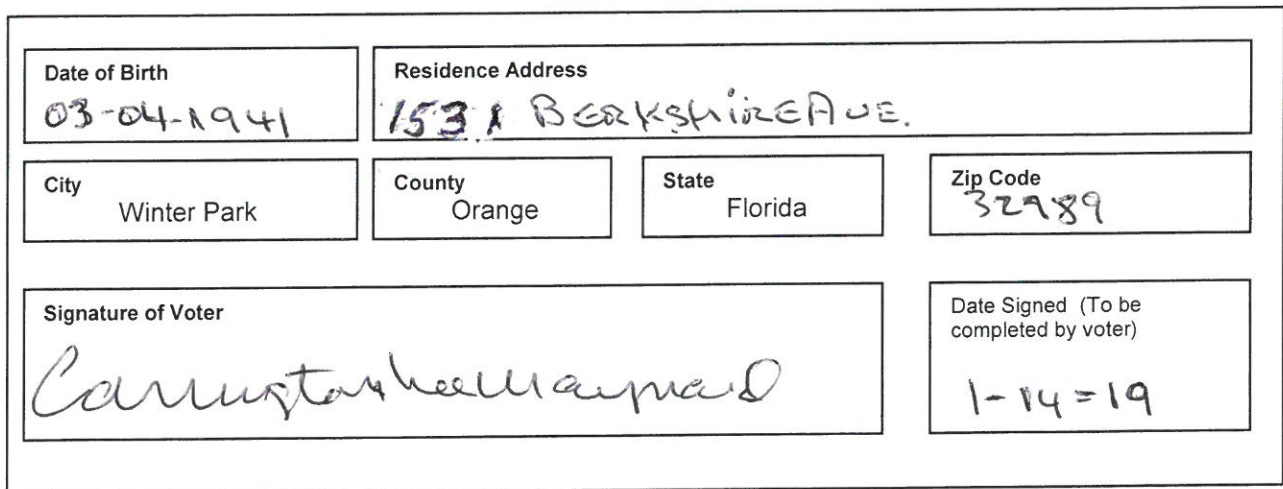 Date of Birth
03-04-1941
Residence Address
1531 BERKSHIRE AVE.
City
Winter Park
County
Orange
State
Florida
Zip Code
32789
Signature of Voter
Carrington Lee Maynard
Date Signed (To be
completed by voter)
1-14=19